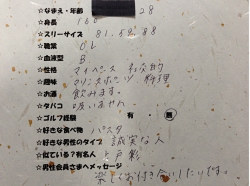 ☆なまえ・年齢 28
☆身長 160
☆スリーサイズ 81.58.88
☆職業 OL
☆血液型 B
☆性格 マイペース 社交的
☆趣味 マリンスポーツ 料理
☆お酒 飲みます。
☆タバコ 吸いません
☆ゴルフ経験 有・無
☆好きな食べ物 パスタ
☆好きな男性のタイプ 誠実な人
☆似ている?有名人 上戸彩
☆男性会員さまへメッセージ
楽しくお付き合いしたいです。